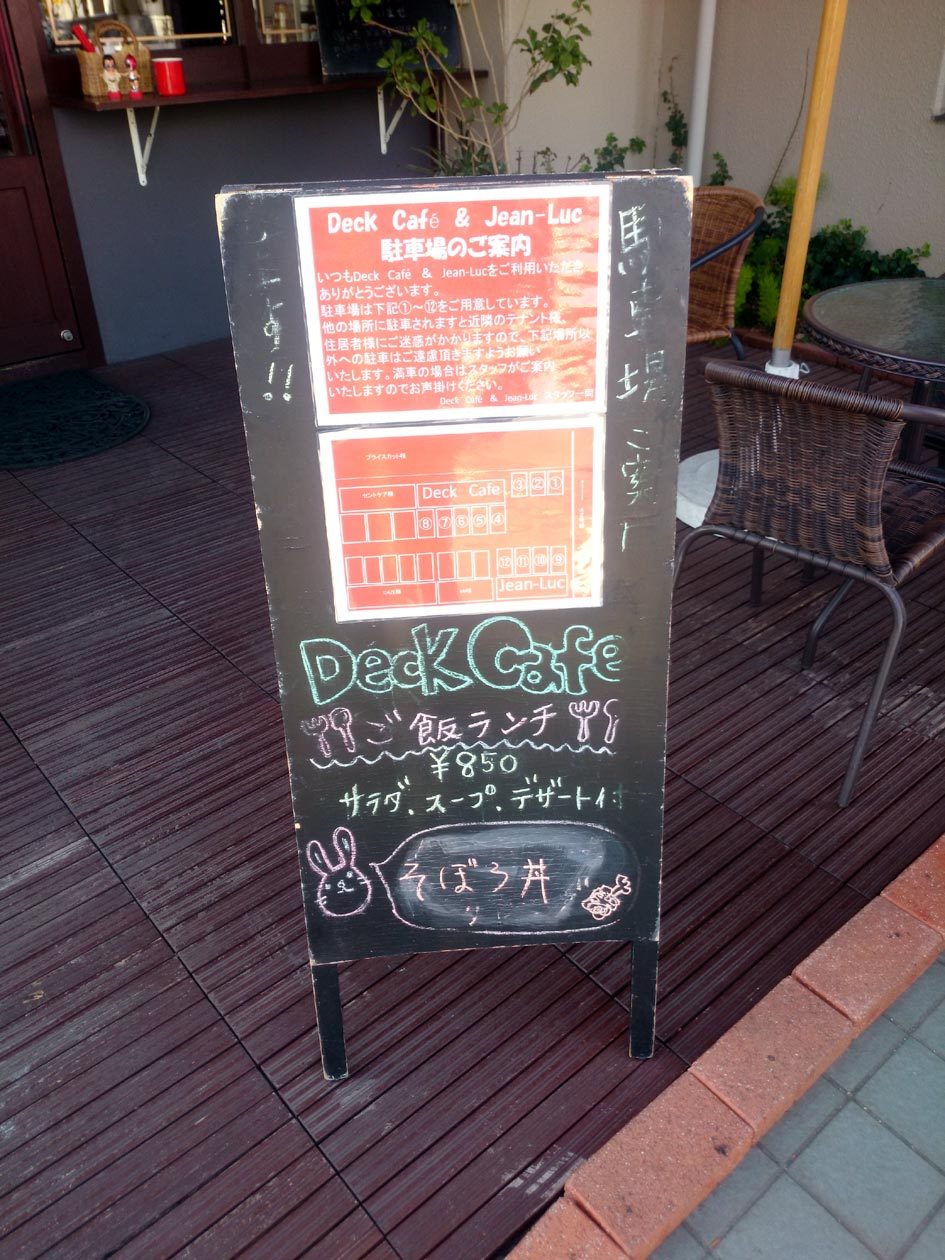 Deck Café & Jean-Luc
駐車場のご案内
いつもDeck Café & Jean-Lucをご利用いただき
ありがとうございます。
駐車場は下記①～⑫をご用意しています。
他の場所に駐車されますと近隣のテナント様、
住居者様にご迷惑がかかりますので、下記場所以
外への駐車はご遠慮頂きますようお願い
いたします。満車の場合はスタッフがご案内
いたしますのでお声掛けください。
Deck Café & Jean-Luc スタッフ一同
プライスカット様
セントケア様
Deck Cafe
③②①
⑧⑦⑥⑤④
⑫⑪⑩⑨
Jean-Luc
Deck Cafe
ご飯ランチ
¥850
サラダ、スープ、デザート付
そぼろ丼